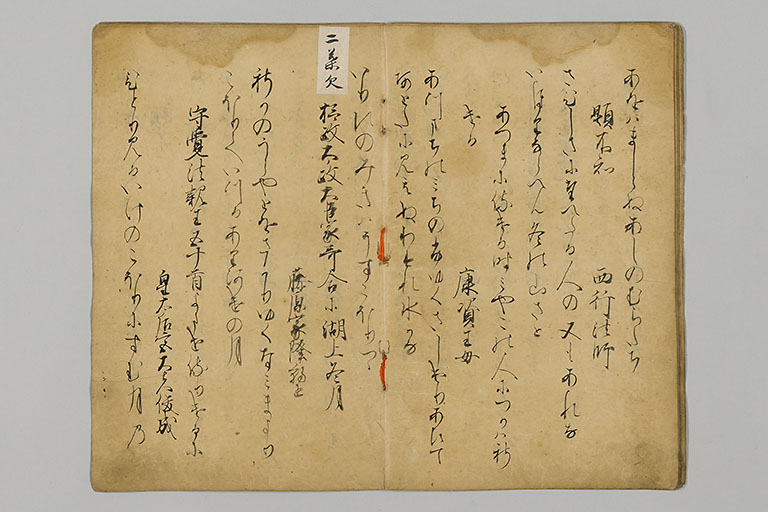 あをはましらぬあしのむらたち
題不知 西行法師
さひしさにたへたる人の又もあれな
いほりならへん冬の山さと
あつまに侍ける時みやこの人につかハし
ける
康資王母
あつまちのみちの冬ゆくさしけりあひて
あとたに見えぬわすれ水かな
こほりつゝ
二葉欠
摂政太政大臣家哥合に湖上冬月
藤原家隆朝臣
志かのうらやとをさかりゆくなミまより
こほりていつるありあけの月
守覚法親王五十首よませ侍けるに
皇太后宮大夫俊成
ひとり見るいけのこほりにすむ月の